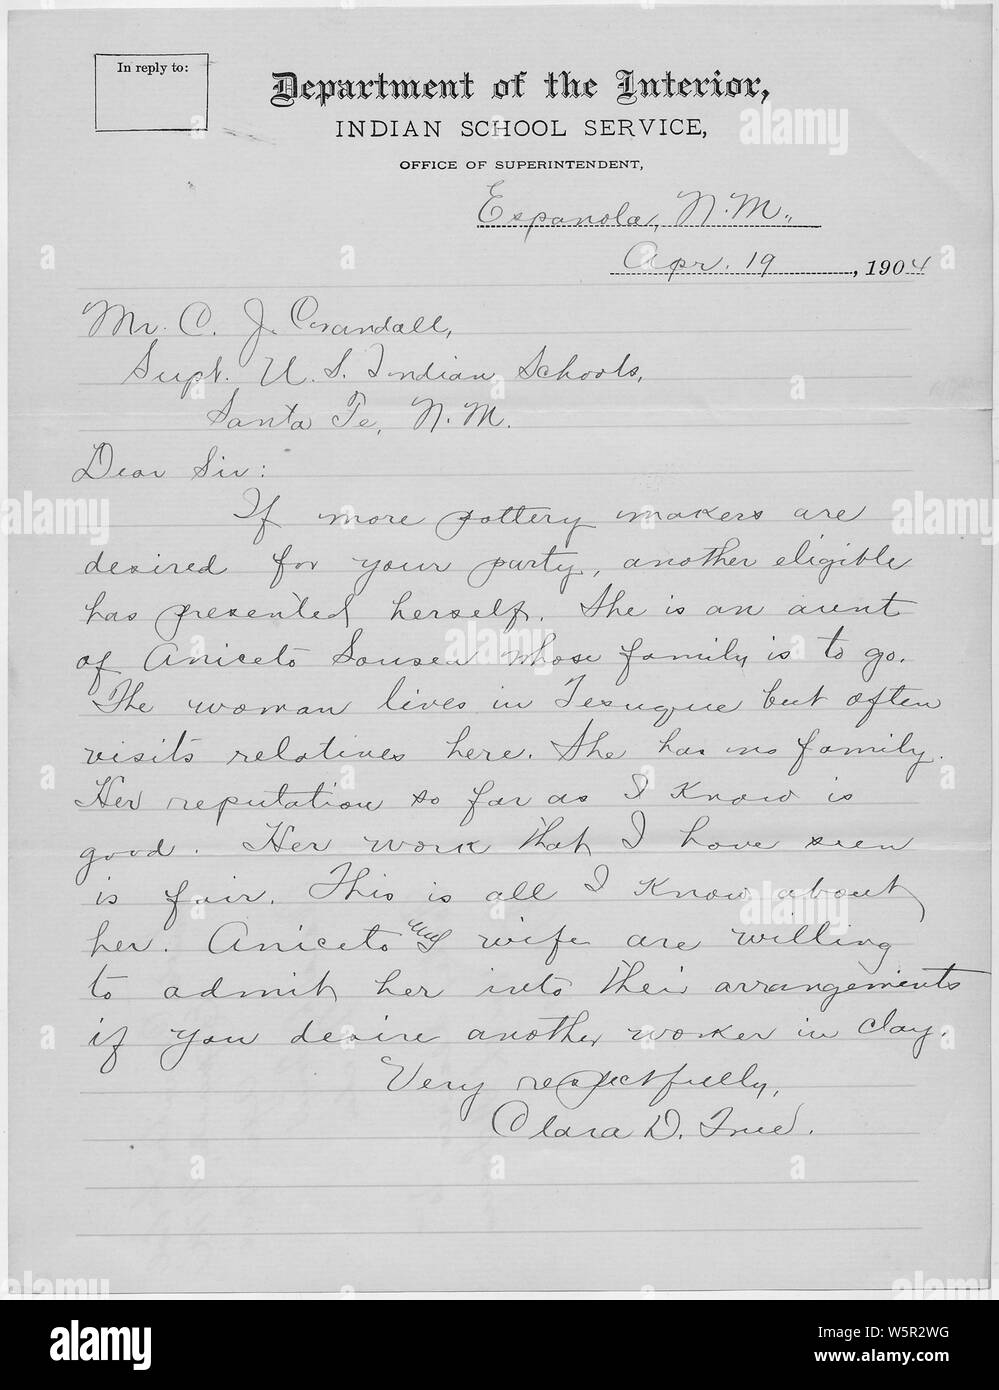 In reply to:
Department of the Interior,
INDIAN SCHOOL SERVICE,
OFFICE OF SUPERINTENDENT,
Espanola, N.M.,
Apr. 19, 1904
Mr. C. J. Crandall,
Supt. U. S. Indian Schools,
Santa Fe, N. M.
Dear Sir:
If more pottery makers are
desired for your party, another eligible
has presented herself. She is an aunt
of Aniceto Sousea whose family is to go.
The woman lives in Tesuque but often
visits relatives here. She has no family.
Her reputation so far as I know is
good. Her work that I have seen
is fair. This is all I know about
her. Aniceto and wife are willing
to admit her into their arrangements
if you desire another worker in clay.
Very respectfully,
Clara D. True.
alamy
Image ID: W5R2WG
www.alamy.com